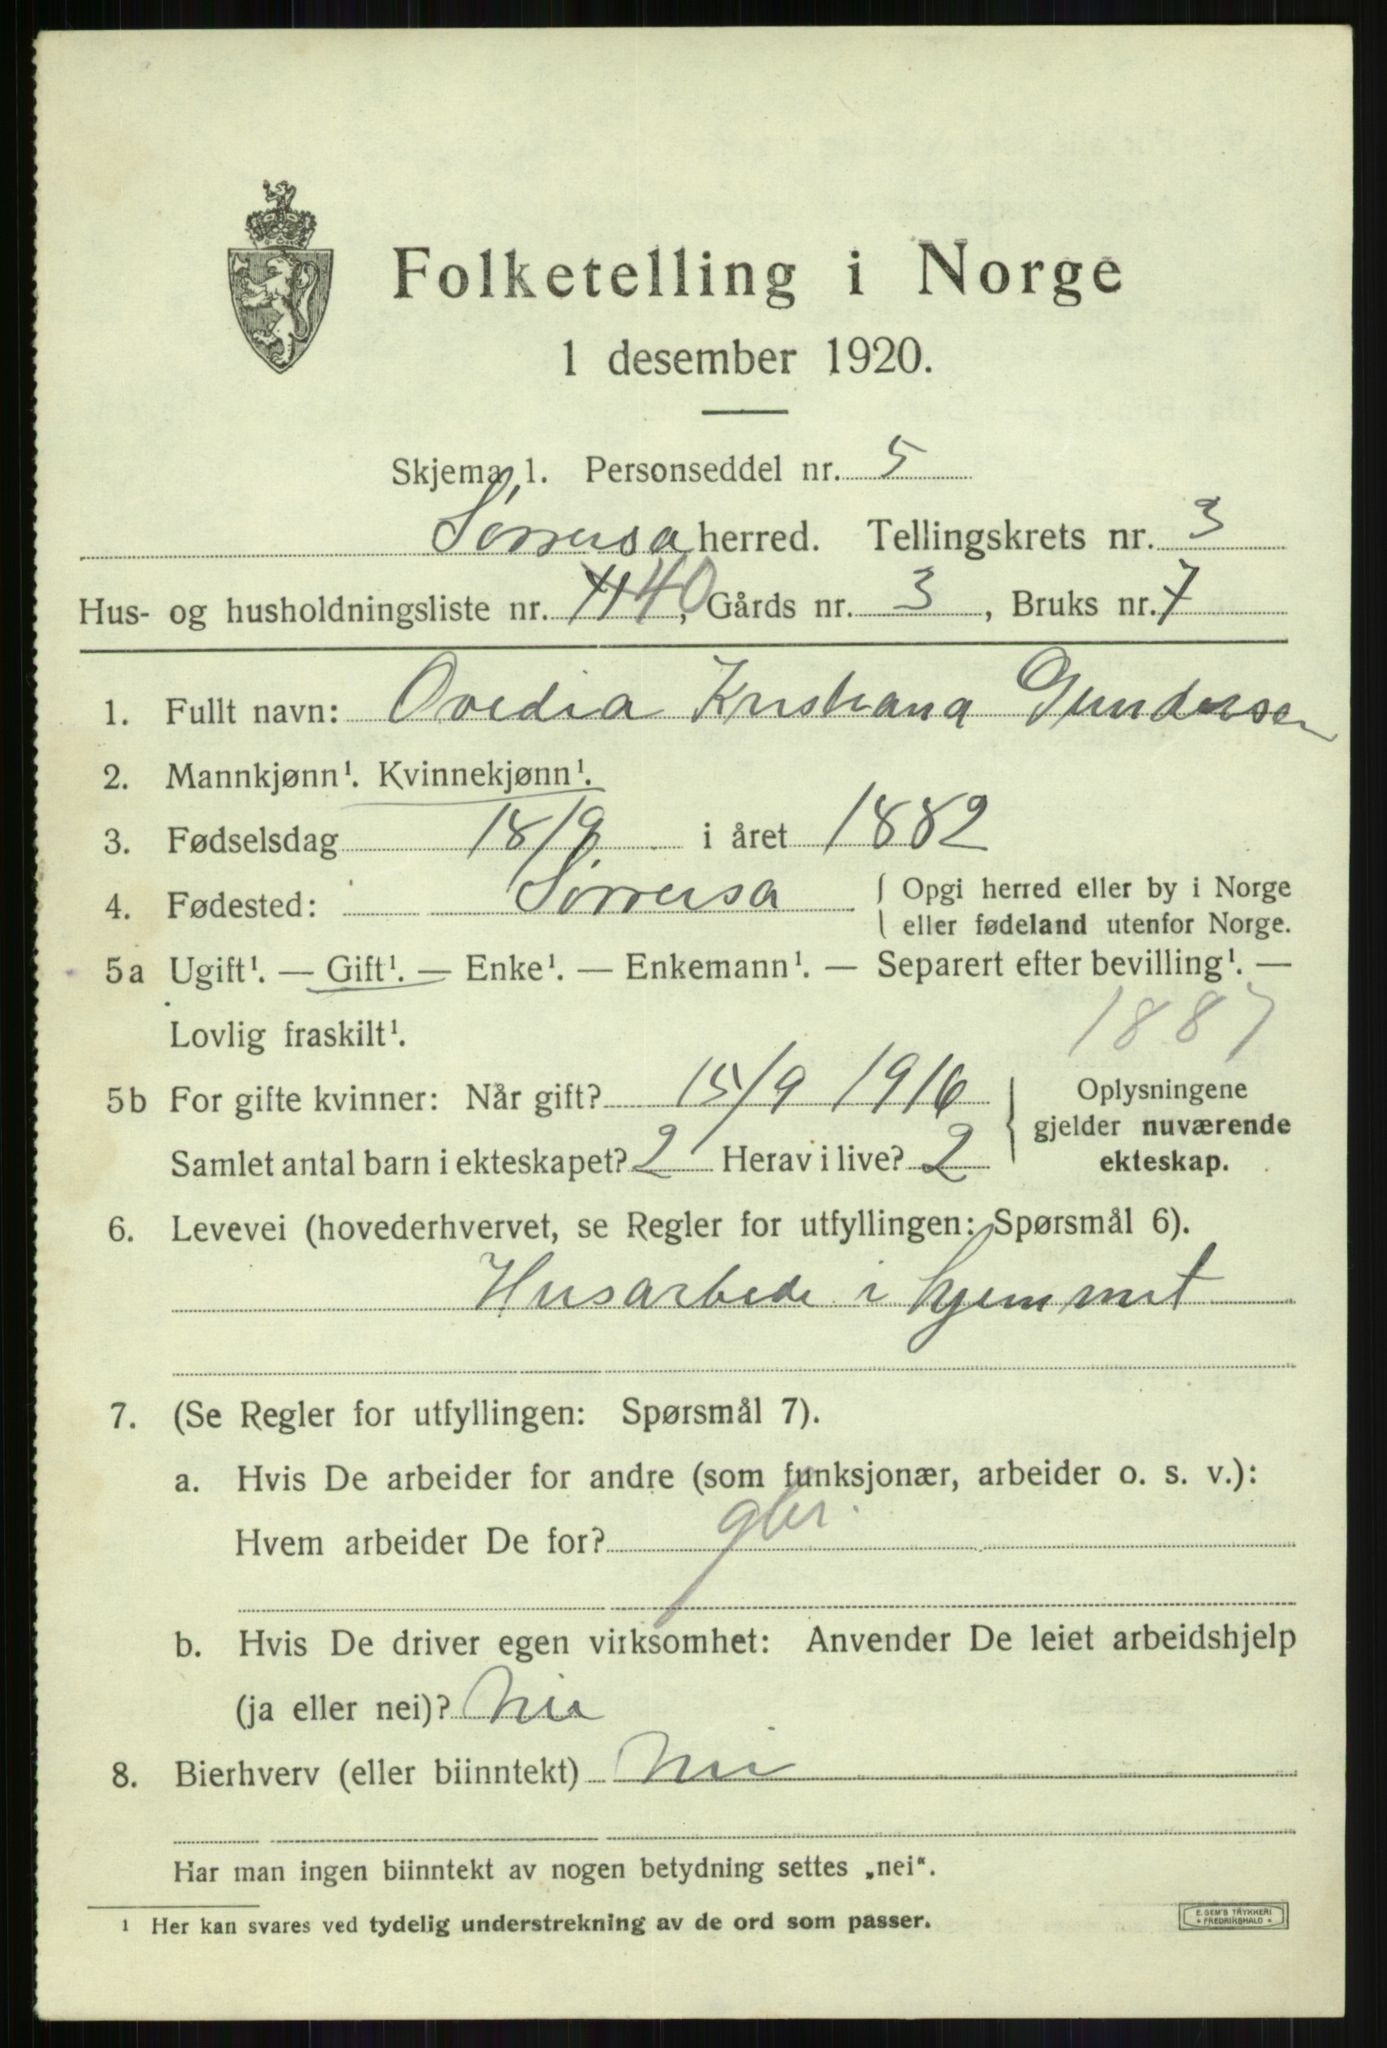 Folketelling i Norge
1 desember 1920.
Skjema 1. Personseddel nr. 5
Sørreisa herred. Tellingskrets nr. 3
Hus- og husholdningsliste nr. 40, Gårds nr. 3, Bruks nr. 7
1. Fullt navn: Ovedia Kristiana Gundersen
2. Mannkjønn¹. Kvinnekjønn¹.
3. Fødselsdag 18/9 i året 1882
4. Fødested: Sørreisa { Opgi herred eller by i Norge
eller fødeland utenfor Norge.
5a Ugift¹. — Gift¹. — Enke¹. — Enkemann¹. — Separert efter bevilling¹. —
Lovlig fraskilt¹. 1887
5b For gifte kvinner: Når gift? 15/9 1916
Samlet antal barn i ekteskapet? 2 Herav i live? 2
Oplysningene
gjelder nuværende
ekteskap.
6. Levevei (hovederhvervet, se Regler for utfyllingen: Spørsmål 6).
Husarbede i hjemmet
7. (Se Regler for utfyllingen: Spørsmål 7).
a. Hvis De arbeider for andre (som funksjonær, arbeider o. s. v.):
Hvem arbeider De for? gbr.
b. Hvis De driver egen virksomhet: Anvender De leiet arbeidshjelp
(ja eller nei)? Nei
8. Bierhverv (eller biinntekt) Nei
Har man ingen biinntekt av nogen betydning settes „nei“.
¹ Her kan svares ved tydelig understrekning av de ord som passer.
E. SEM'S TRYKKERI
* FREDRIKSHALD *